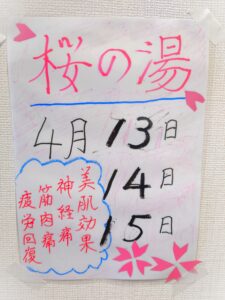 桜の湯
4月13日
14日
15日
美肌効果
神経痛
筋肉痛
疲労回復